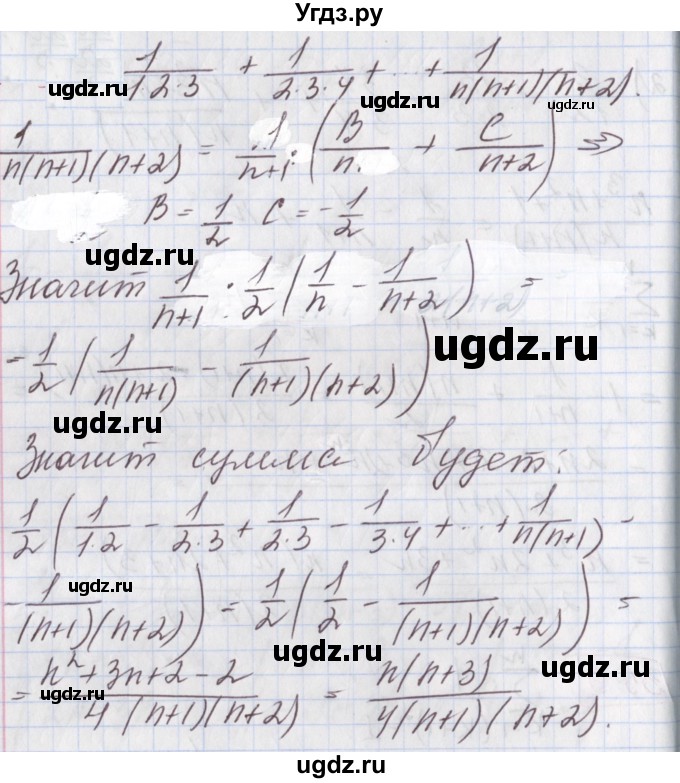 Угдз.ру
1/(1·2·3) + 1/(2·3·4) + ... + 1/(n(n+1)(n+2)).
ugdz.ru ugdz.ru ugdz.ru
1/(n(n+1)(n+2)) = 1/(n+1) · (B/n + C/(n+2)) ⇒
B = 1/2 C = -1/2
ugdz.ru ugdz.ru
Значит 1/(n+1) · 1/2 (1/n - 1/(n+2)) =
ugdz.ru
= 1/2 (1/(n(n+1)) - 1/((n+1)(n+2)))
ugdz.ru
Значит сумма будет:
ugdz.ru
1/2 (1/(1·2) - 1/(2·3) + 1/(2·3) - 1/(3·4) + ... + 1/(n(n+1)) -
ugdz.ru
- 1/((n+1)(n+2))) = 1/2 (1/2 - 1/((n+1)(n+2))) =
ugdz.ru
= (n²+3n+2-2)/(4(n+1)(n+2)) = n(n+3)/(4(n+1)(n+2)).
ugdz.ru
ugdz.ru
ugdz.ru